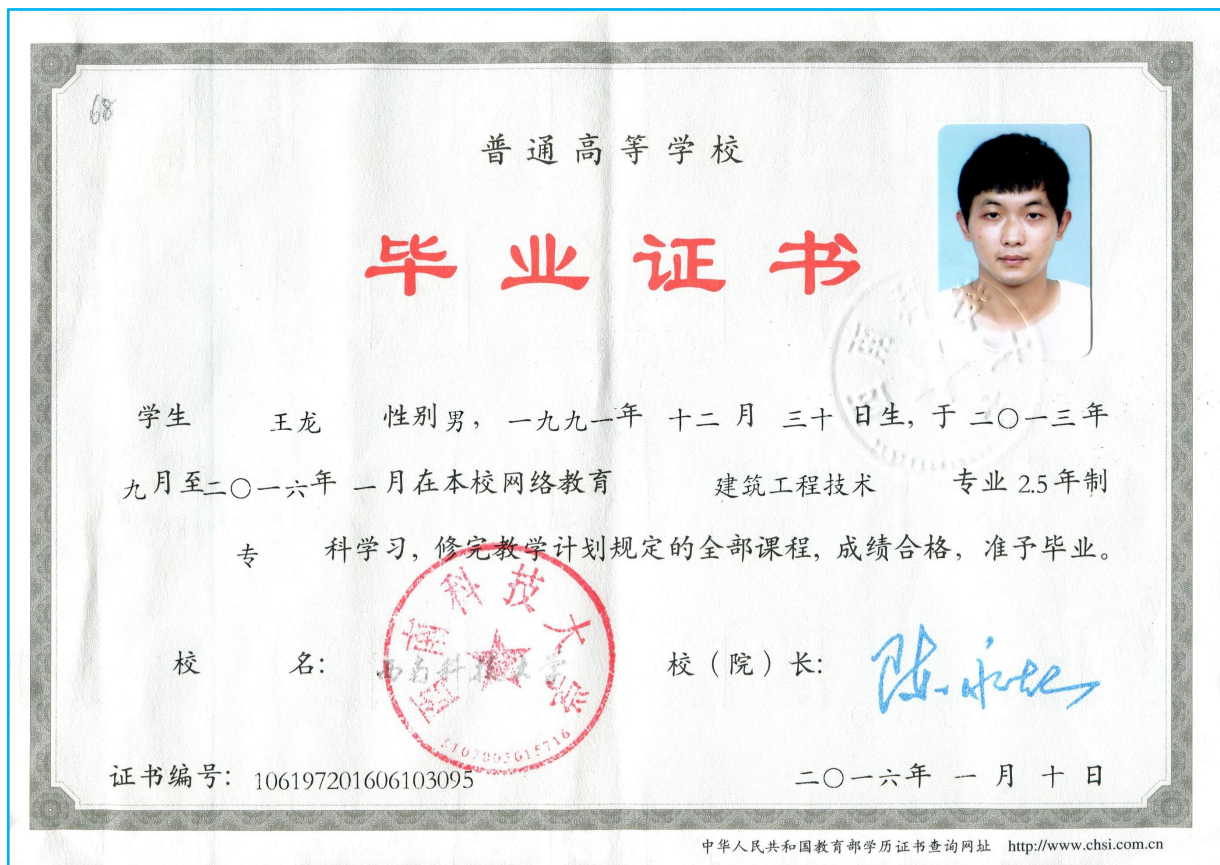 68
普通高等学校
毕业证书
学生 王龙 性别男，一九九一年 十二月 三十日生，于二〇一三年
九月至二〇一六年 一月在本校网络教育 建筑工程技术 专业 2.5年制
专 科学习，修完教学计划规定的全部课程，成绩合格，准予毕业。
校 名： 西南科技大学
西南科技大学
5107003015716
校（院）长：
证书编号：106197201606103095
二〇一六年 一月十日
中华人民共和国教育部学历证书查询网址 http://www.chsi.com.cn